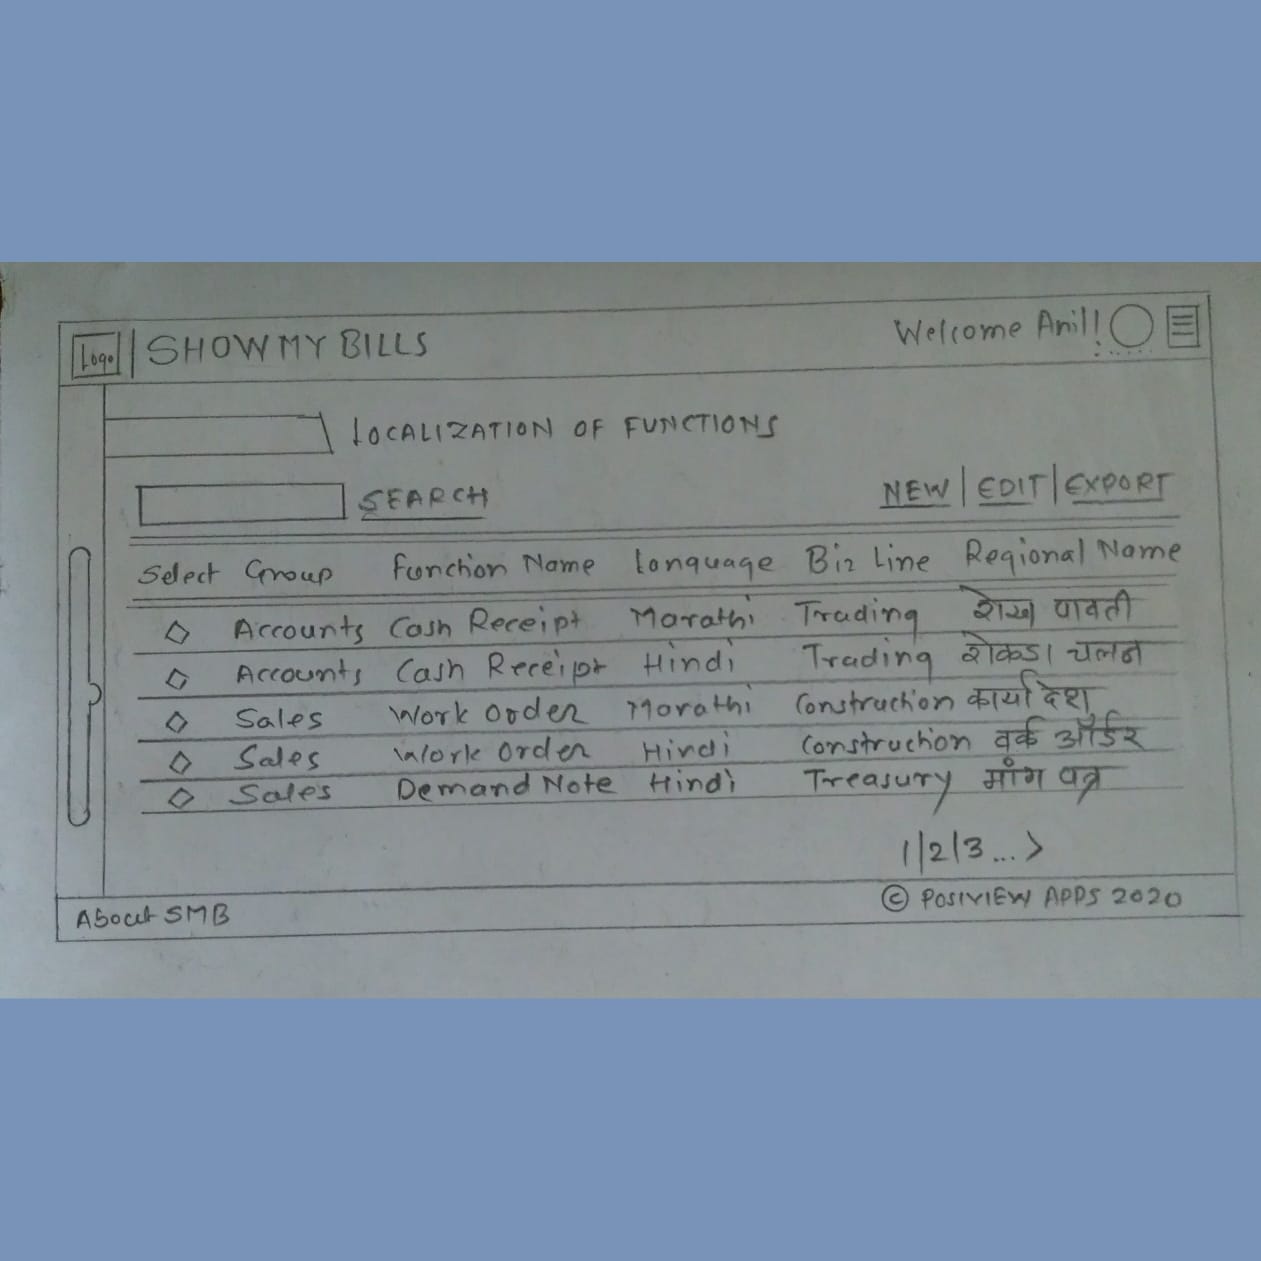 Logo SHOWMYBILLS Welcome Anil!
LOCALIZATION OF FUNCTIONS
SEARCH NEW | EDIT | EXPORT
Select Group Function Name Language Biz Line Regional Name
Accounts Cash Receipt Marathi Trading पावती
Accounts Cash Receipt Hindi Trading रोकडा चलन
Sales Work Order Marathi Construction कार्यादेश
Sales Work Order Hindi Construction वर्क ऑर्डर
Sales Demand Note Hindi Treasury माँग पत्र
1|2|3...>
About SMB © POSIVIEW APPS 2020